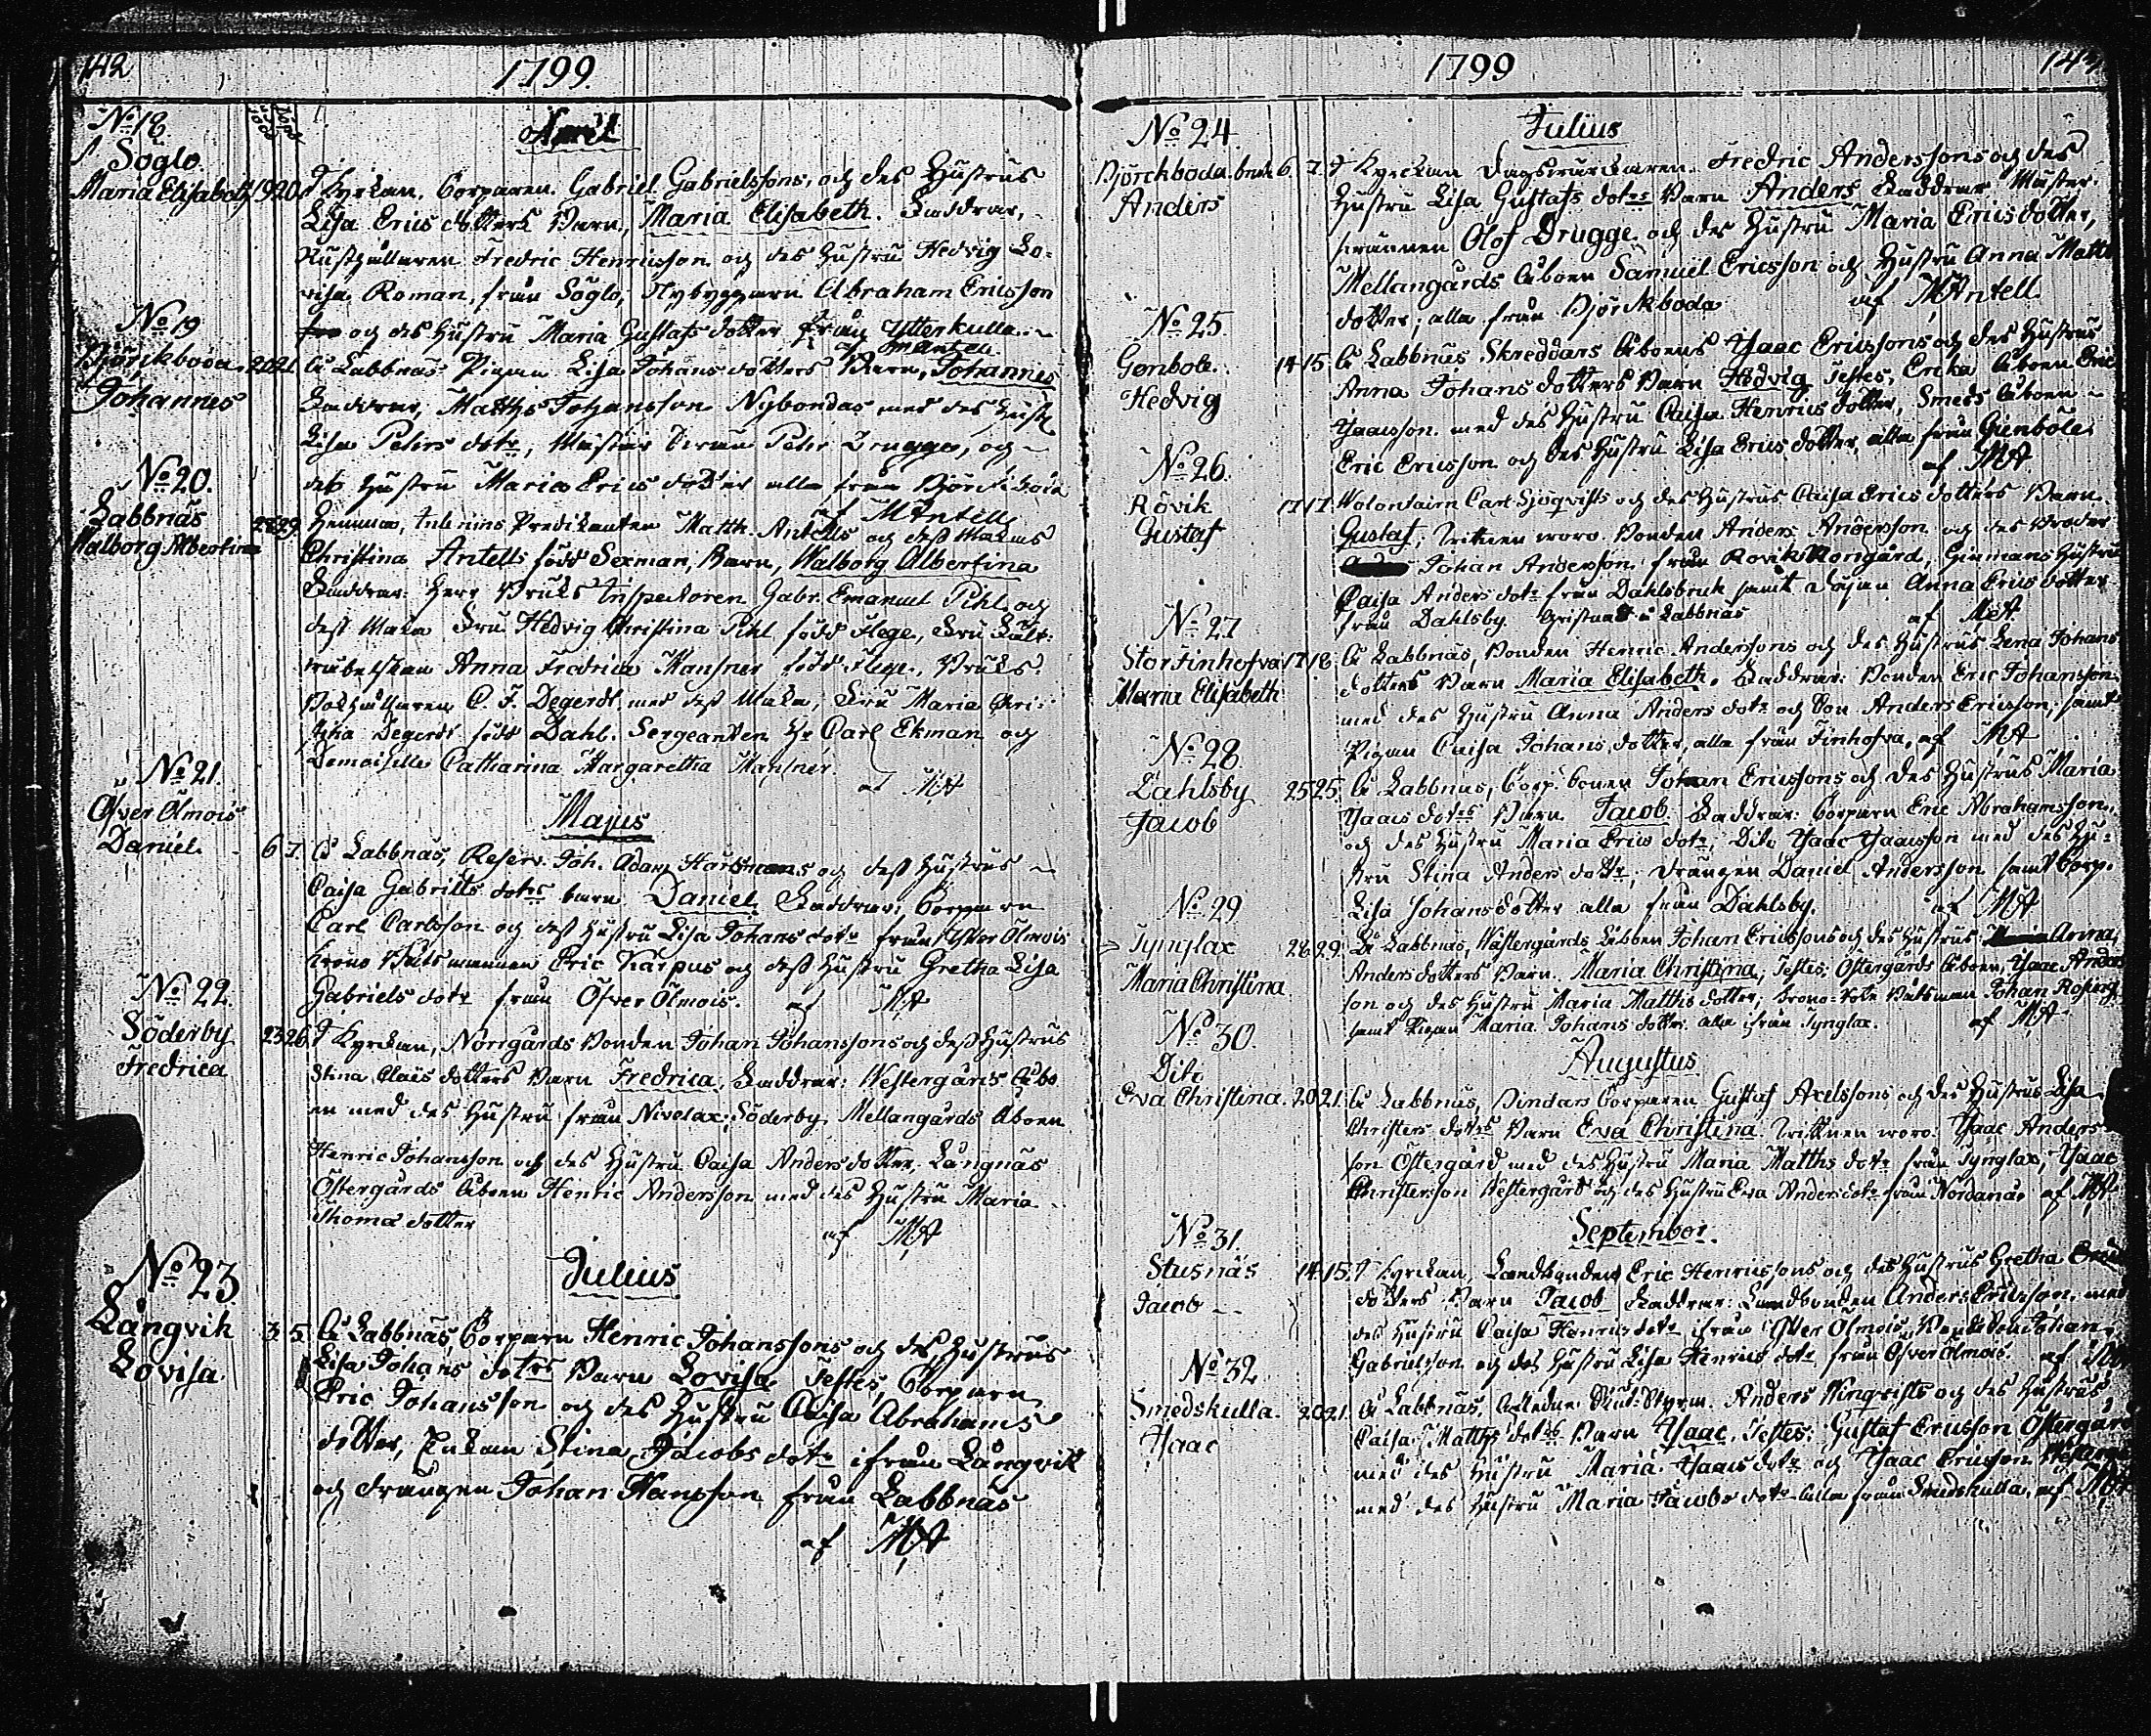 142
1799
No 18
Söglö
Maria Elisabeth 19 20
April
I Kyrkan, Torparen Gabriel Gabrielssons, och des Hustrus
Lisa Erics dotters Barn, Maria Elisabeth. Faddrar,
Rusthållaren Fredric Henricsson och des Hustru Hedvig Lo-
visa Roman, från Söglö, Nybyggaren Abraham Ericsson
och des Hustru Maria Gustafs dotter från Ytterkulla.
af M Antell
No 19
Björckboda 20 21
Johannes
å Labbnäs Pigan Lisa Johans dotters Barn, Johannes
Faddrar, Matths Johansson Nybondas med des Hustru
Lisa Peters dotr, Mäster Peter Drugge, och
des Hustru Maria Erics dotter alla från Björckboda
af M Antell
No 20.
Labbnäs 28 29
Walborg Albertina
Hemma, Predikanten Matth. Antells och dess Makas
Christina Antells född Sexman, Barn, Walborg Albertina
Faddrar Herr Bruks Inspectoren Gabr. Emanuel Pihl och
dess Maka Fru Hedvig Christina Pihl född Hege, Fru
Anna Fredrica Mansner född Hege, Bruks
Bokhållaren C. F. Degerdt med dess Maka, Fru Maria Chri-
stina Degerdt född Dahl. Sergeanten Hr Carl Ekman och
Demoiselle Catharina Margaretha Mansner.
af MA
Majus
No 21.
Öfver Ölmois
Daniel 6 7
å Labbnäs, Reserv. Joh. Adam Hartmans och dess Hustrus
Caisa Gabriels dotrs barn Daniel. Faddrar; Torparen
Carl Carlsson och dess Hustru Lisa Johans dotr från Öfver Ölmois
Krono Båtsmannen Eric Karpus och dess Hustru Gretha Lisa
Gabriels dotr från Öfver Ölmois. af MA
No 22
Söderby 25 26
Fredrica
I Kyrkan, Norrgårds Bonden Johan Johanssons och dess Hustrus
Stina Claës dotters Barn Fredrica, Faddrar: Westergårds Åbo
en med des Hustru från Nivelax, Söderby Mellangårds Åboen
Henric Johansson och des Hustru Caisa Anders dotter Långnäs
Östergårds Åboen Henric Andersson med des Hustru Maria
Thomæ dotter
af MA
Julius
No 23
Långvik 3 5
Lovisa
å Labbnäs, Torparen Henric Johanssons och des Hustrus
Lisa Johans dotrs Barn Lovisa Testes, Torparen
Eric Johansson och des Hustru Caisa Abrahams
dotter, Enkan Stina Jacobs dotr ifrån Långvik
och drängen Johan Hansson från Labbnäs
af MA
1799
143
Julius
No 24.
Björckboda bruk 6. 7.
Anders
I Kyrckan Fredric Anderssons och des
Hustru Lisa Gustafs dotrs Barn Anders Faddrar Mäster
Olof Drugge och des Hustru Maria Erics dotter,
Mellangårds åboen Samuel Ericsson och Hustru Anna Matts
dotter, alla från Björckboda af M Antell
No 25
Genböle 14 15
Hedvig
å Labbnäs Skreddars Åboens Ysaac Ericssons och des Hustrus
Anna Johans dotters Barn Hedvig Testes, Ericka Åboen Eric
Ysaacsson med des Hustru Caisa Henrics dotter, Smeds Åboen
Eric Ericsson och des Hustru Lisa Erics dotter, alla från Genböle
af MA
No 26
Rövik 17 17
Gustaf
Volontairn Carl Sjöqvists och des Hustrus Caisa Erics dotters Barn
Gustaf, Vittnen woro Bonden Anders Andersson och des Broder
Johan Andersson från Rövik Norrgård, Hustru
Caisa Anders dotr från Dahlsbruk samt Pigan Anna Erics dotter
från Dahlsby. Christnadt å Labbnäs af MA.
No 27
Storfinhofva 17 18
Maria Elisabeth
å Labbnäs, Bonden Henric Anderssons och des Hustrus Lena Johans
dotters Barn Maria Elisabeth. Faddrar: Bonden Eric Johansson
med des Hustru Anna Anders dotr och Son Anders Ericsson, samt
Pigan Caisa Johans dotter, alla från Finhofva, af MA
No 28
Dahlsby 25 25
Jacob
å Labbnäs, Torp. Johan Ericssons och des Hustrus Maria
Ysaacs dotrs Barn Jacob Faddrar: Torparn Eric Abrahamsson,
och des Hustru Maria Erics dotr, Dito Ysaac Ysaacsson med des Hu-
stru Stina Anders dotr, Drängen Daniel Andersson samt
Lisa Johans dotter alla från Dahlsby. af MA
No 29
Tynglax 28 29
Maria Christina
å Labbnäs, Westergårds Åboen Johan Ericssons och des Hustrus Anna
Anders dotters Barn. Maria Christina, Testes: Östergårds Åboen Ysaac Anders
son och des Hustru Maria Matths dotter, Båtsman Johan Rosing
samt Pigan Maria Johans dotter alla ifrån Tynglax. af MA
Augustus
No 30.
Dito
Eva Christina. 20 21
å Labbnäs, Torparen Gustaf Axelssons och des Hustrus Lisa
Christers dotrs Barn Eva Christina Vittnen woro: Ysaac Anders-
son Östergård med des Hustru Maria Matths dotr från Tynglax, Ysaac
Christersson Westergård och des Hustru Eva Anders dotr från Nordanå af MA
September.
No 31
Stusnäs 14 15
Jacob
I Kyrckan, Landbonden Eric Henricssons och des Hustrus Gretha Erics
dotters Barn Jacob Faddrar: Landbonden Anders Ericsson, med
des Hustru Caisa Henrics dotr ifrån Öfver Ölmois, Bonden Johan
Gabrielsson och des Hustru Lisa Henrics dotr från Öfver Ölmois. af MA
No 32
Smedskulla 20 21
Ysaac
å Labbnäs, Anders Winqvists och des Hustrus
Caisa Matths dotrs Barn Ysaac. Testes: Gustaf Ericsson Östergård
med des Hustru Maria Ysaacs dotr och Ysaac Ericsson
med des Hustru Maria Jacobs dotr alla från Smedskulla, af MA